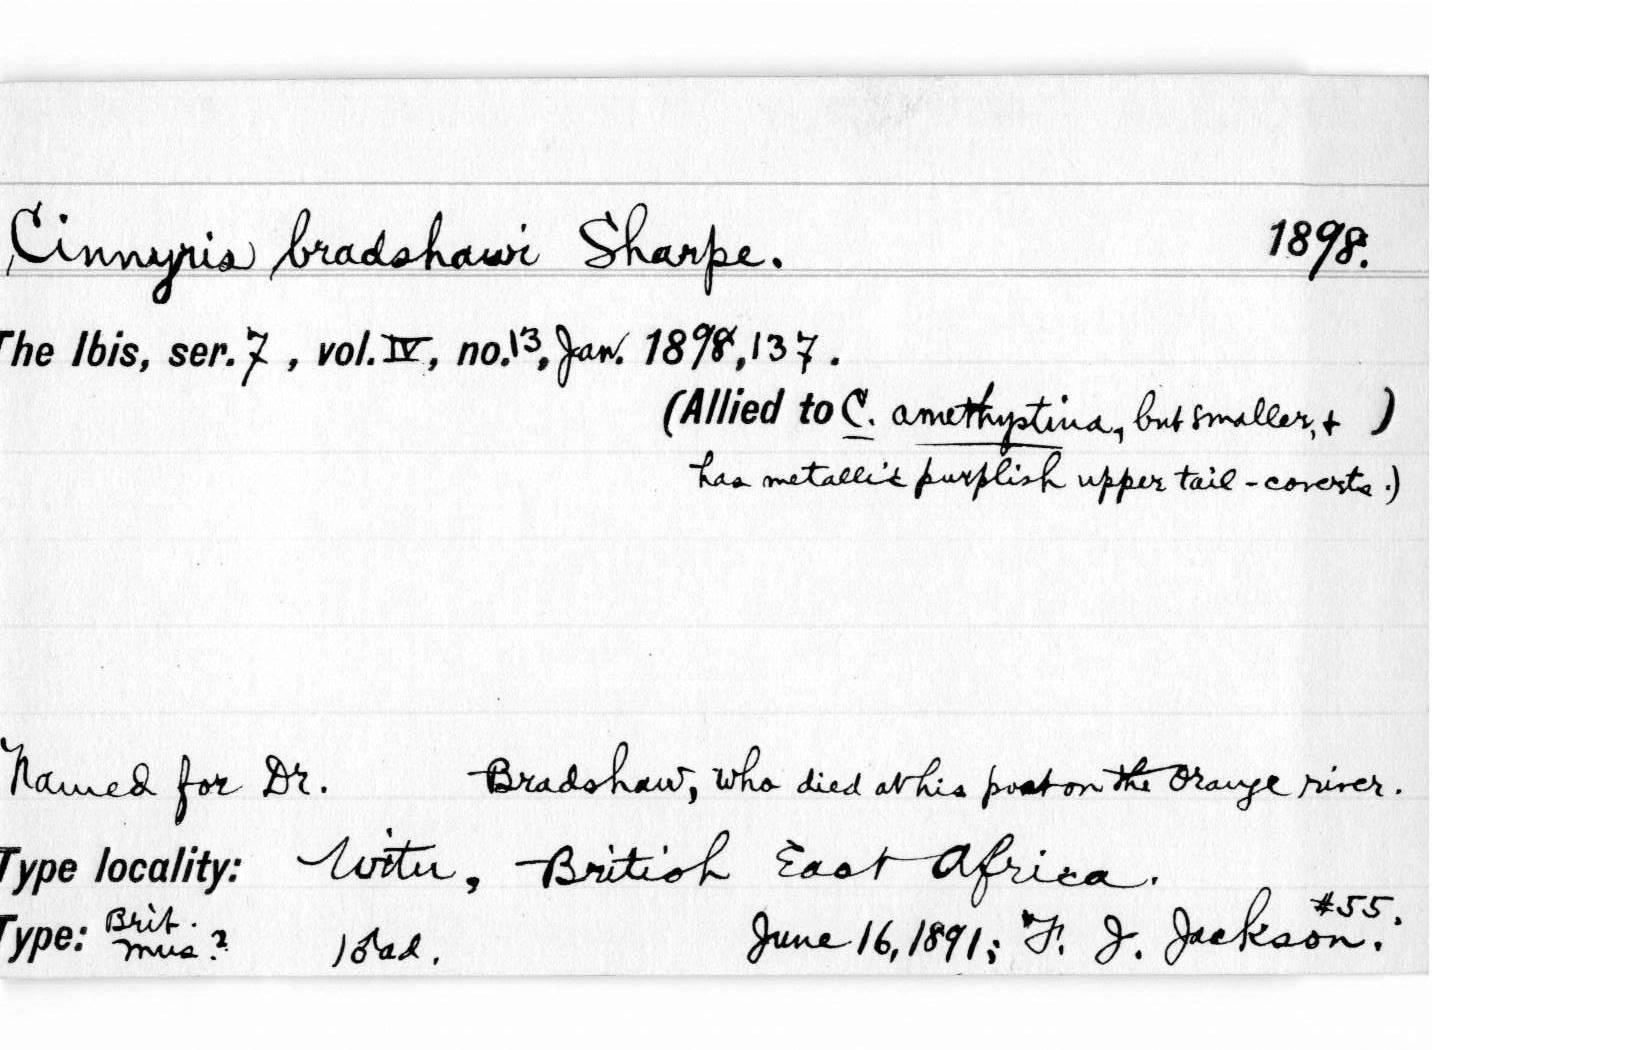 Cinnyris bradshawi Sharpe. 1898.
The Ibis, ser. 7, vol. IV, no. 13, Jan. 1898, 137.
(Allied to C. amethystina, but smaller, + )
has metallic purplish upper tail-coverts.)
Named for Dr. Bradshaw, who died at his post on the Orange river.
Type locality: Witu, British East Africa.
#55.
Type: Brit. Mus.? ad. June 16, 1891; F. J. Jackson.